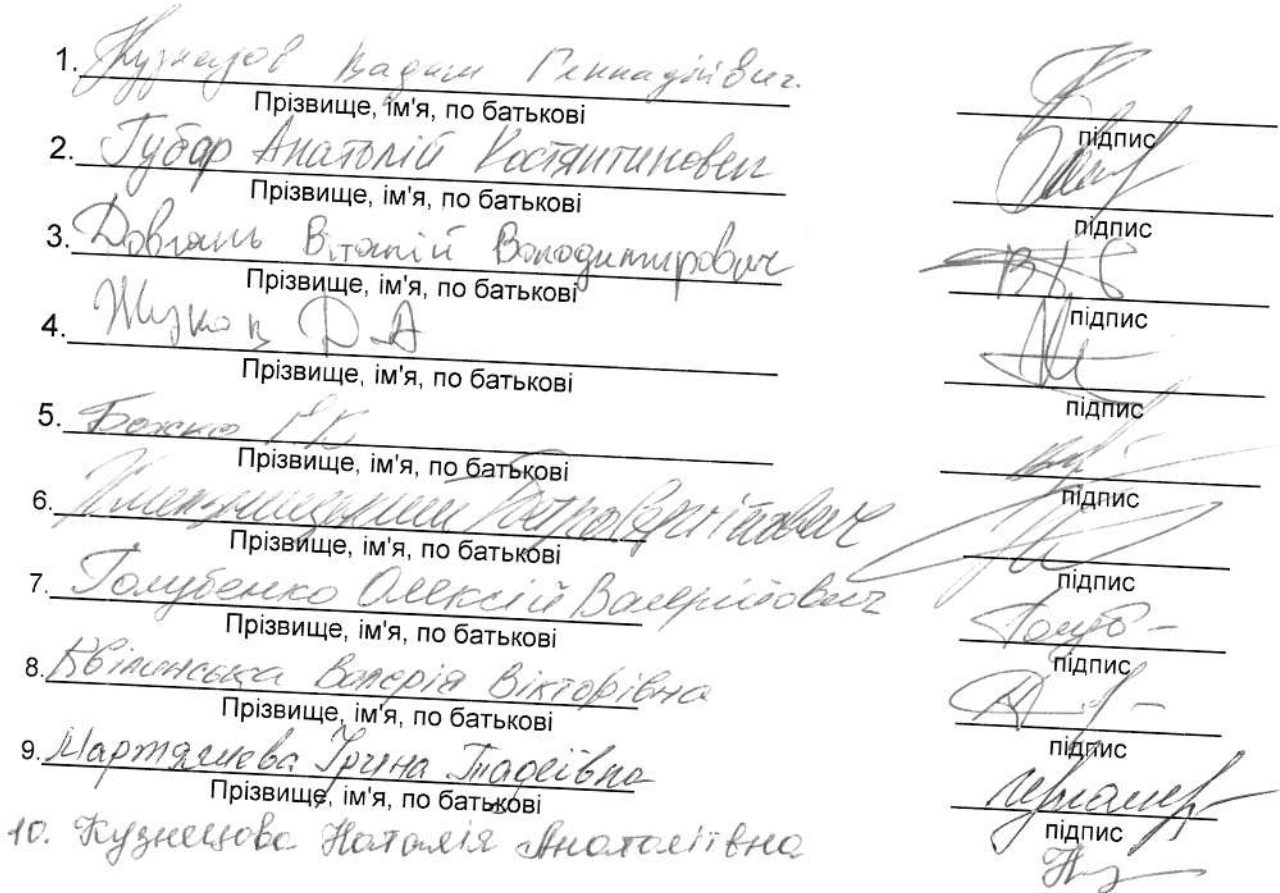 1. Кузнецов Вадим Геннадійвич.
Прізвище, ім'я, по батькові
підпис
2. Губар Анатолій Костянтинович
Прізвище, ім'я, по батькові
підпис
3. Довгань Віталій Володимирович
Прізвище, ім'я, по батькові
підпис
4. Д А
Прізвище, ім'я, по батькові
підпис
5. Божко
Прізвище, ім'я, по батькові
підпис
6.
Прізвище, ім'я, по батькові
підпис
7. Голубенко Олексій Валерійович
Прізвище, ім'я, по батькові
Голуб -
підпис
8. Квілінська Валерія Вікторівна
Прізвище, ім'я, по батькові
підпис
9. Мартяшева Ірина Тадеївна
Прізвище, ім'я, по батькові
підпис
10. Кузнецова Наталія Анатоліївна